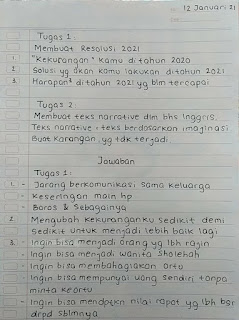 12 Januari 21
Tugas 1 :
Membuat Resolusi 2021
1. "Kekurangan" kamu ditahun 2020
2. Solusi yg akan kamu lakukan ditahun 2021
3. Harapan² ditahun 2021 yg blm tercapai
Tugas 2 :
Membuat teks narrative dlm bhs Inggris.
Teks narrative : teks berdasarkan imaginasi
Buat karangan, yg tdk terjadi
Jawaban
Tugas 1 :
1. - Jarang berkomunikasi sama keluarga
- Keseringan main hp
- Boros & Sebagainya
2. - Mengubah kekuranganku sedikit demi
sedikit untuk menjadi lebih baik lagi
3. - Ingin bisa menjadi orang yg lbh rajin
- Ingin bisa menjadi wanita sholehah
- Ingin bisa membahagiakan ortu
- Ingin bisa mempunyai uang sendiri tanpa
minta ke ortu
- Ingin bisa mendptkn nilai rapot yg lbh bsr
drpd sblmnya